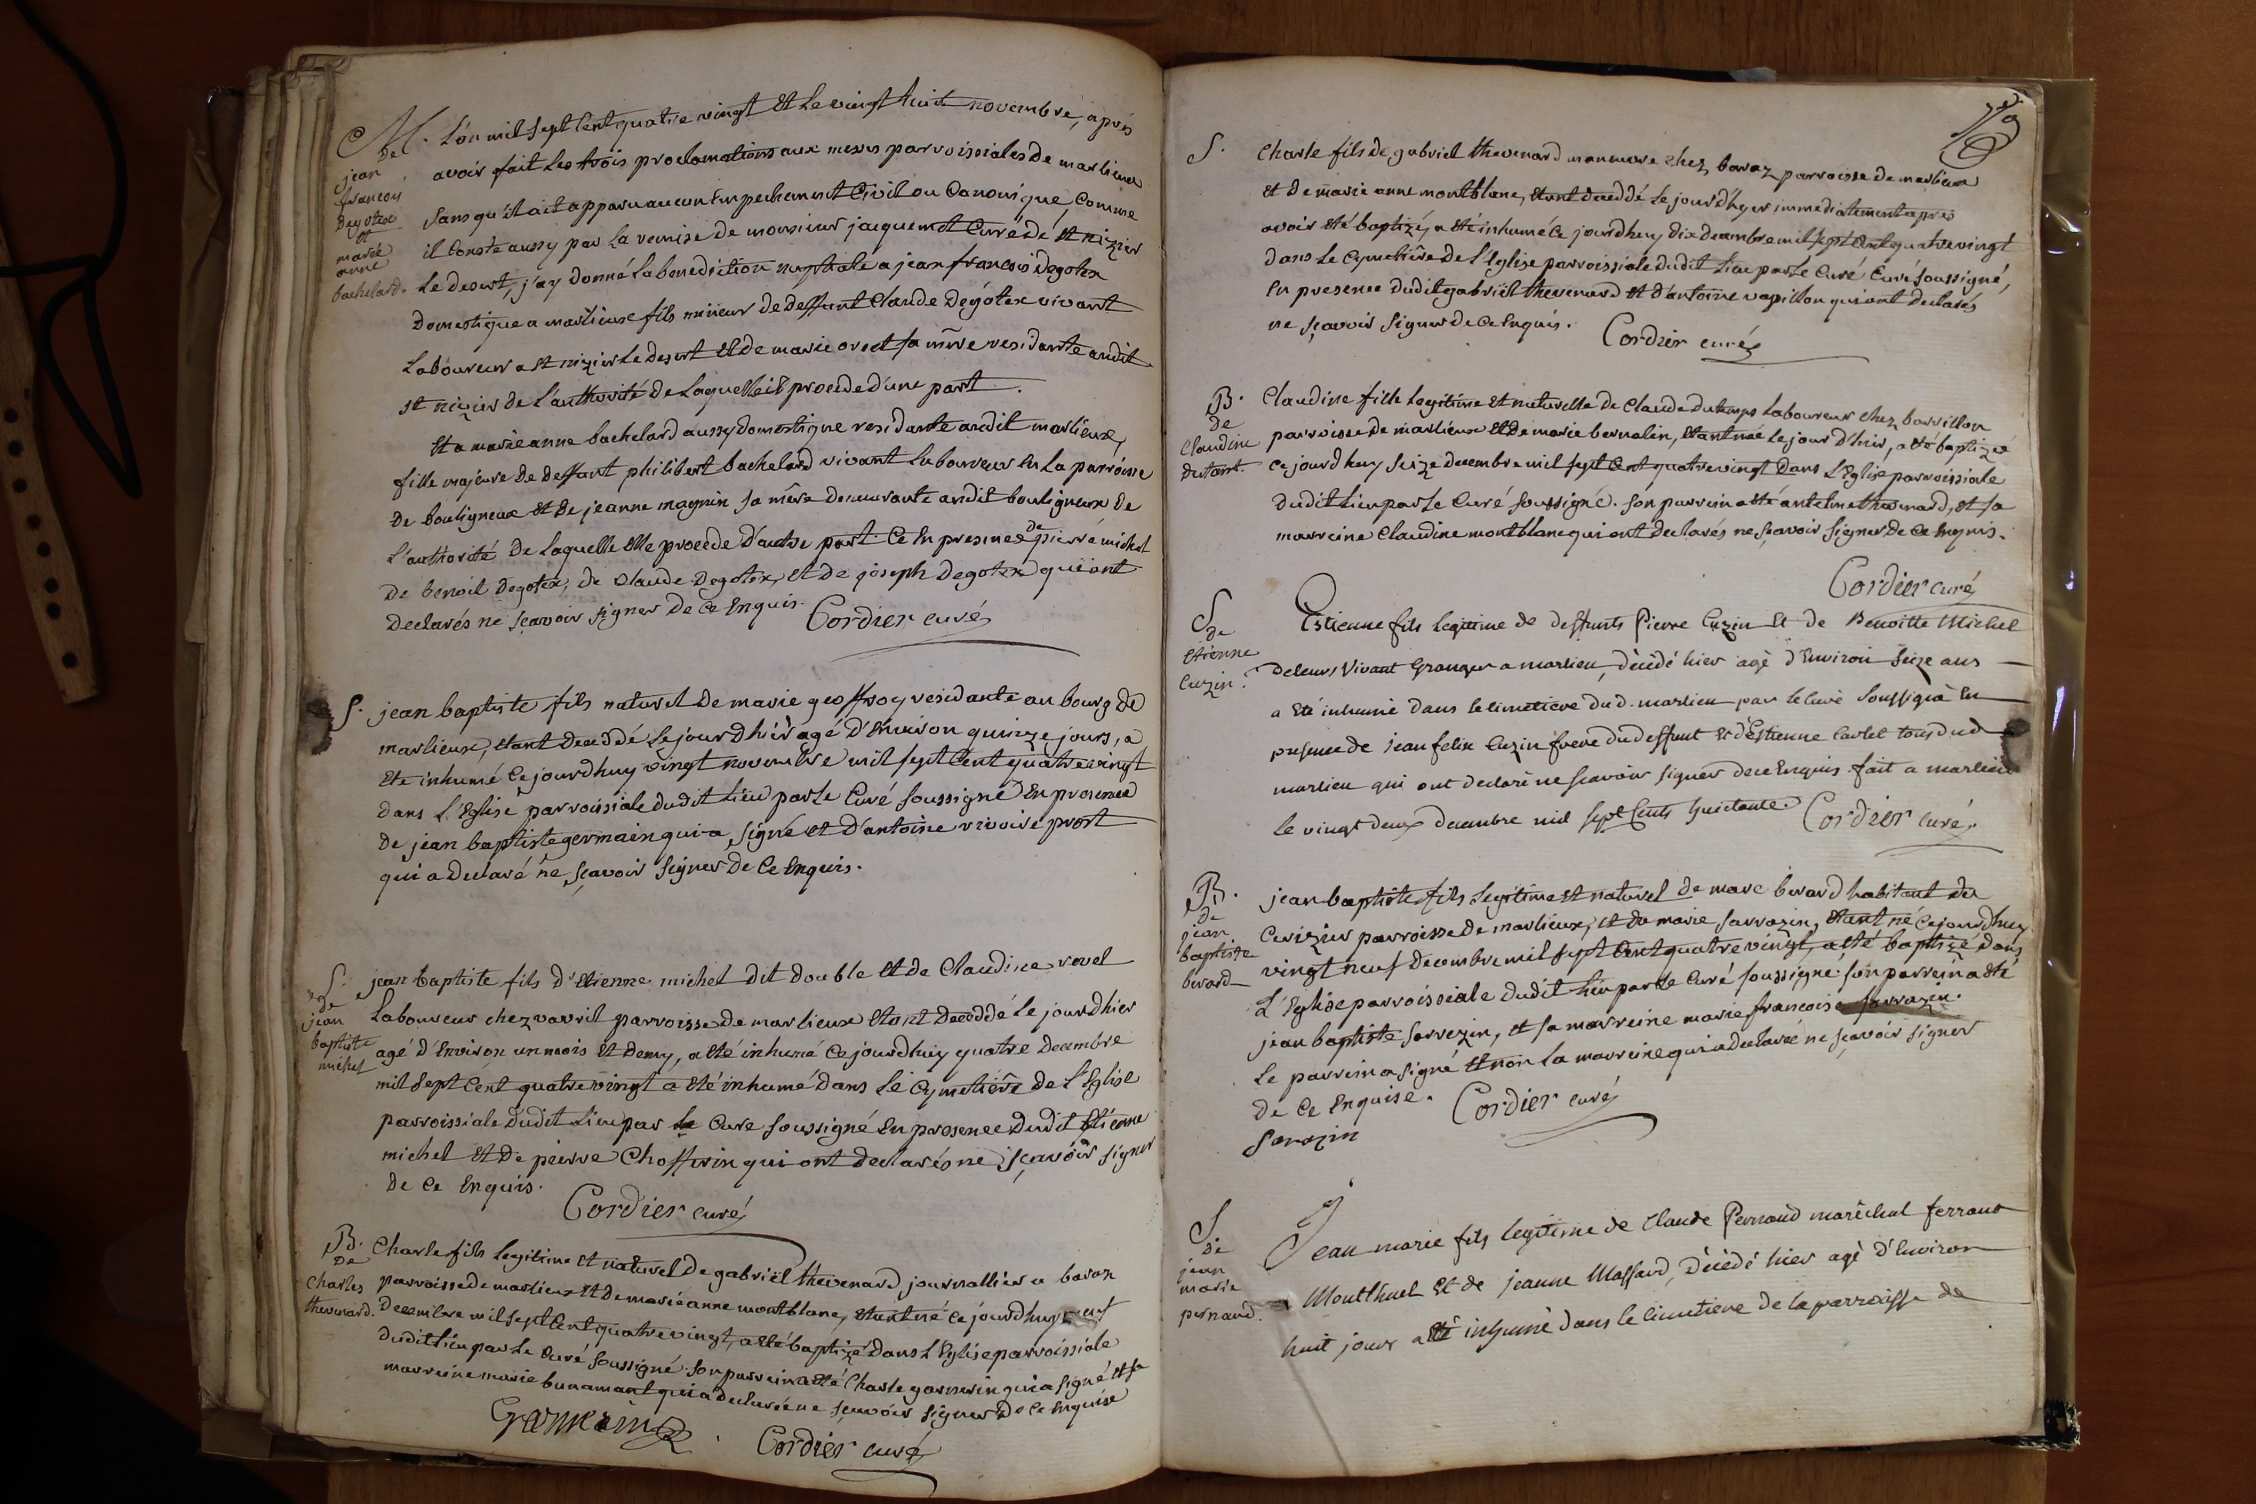 M.
de
jean
francois
Degotex
et
marie
anne
bachelard.
L'an mil sept Cent quatre vingt et Le vingt huit novembre, après
avoir fait Les trois proclamations aux messes parroissiales de marlieux
Sans qu'il ait apparu aucun Empechement Civil ou Canonique, Comme
il Conste aussy par La remise de monsieur jacquemet Curé de st nizier
Le desert, j'ay donné La benediction nuptiale a jean francois Degotex
Domestique a marlieux fils mineur de deffunt Claude Degotex vivant
Laboureur a st nizier Le desert et de marie orset sa mère residante audit
st nizier de L'authorité de Laquelle il procede d'une part.
Et a marie anne bachelard aussy domestique residante audit marlieux,
fille majeure de deffunt philibert bachelard vivant Laboureur En La parroisse
de bouligneux et de jeanne magnin sa mère demeurante audit bouligneux de
L'authorité de Laquelle Elle procede d'autre part. Ce En presence de pierre michel
de benoit Degotex, de Claude Degotex, et de joseph Degotex qui ont
declarés ne sçavoir signer de Ce Enquis. Cordier curé
S.
jean baptiste fils naturel de marie geoffroy residante au bourg de
marlieux, etant decedé Le jour d'hier agé d'Environ quinze jours, a
Eté inhumé Ce jourdhuy vingt novembre mil sept Cent quatre vingt
dans L'Eglise parroissiale dudit Lieu par Le Curé soussigné En presence
de jean baptiste germain qui a signé et d'antoine vivoire prost
qui a declaré ne sçavoir signer de Ce Enquis.
S.
de
jean
baptiste
michel
jean baptiste fils d'Etienne michel dit double et de Claudine revel
Laboureur chez vavril parroisse de marlieux Etant deceddé Le jourdhier
agé d'Environ un mois Et demy, a eté inhumé Ce jourdhuy quatre decembre
mil sept Cent quatre vingt a Eté inhumé dans Le Cymetière de L'Eglise
parroissiale dudit Lieu par Le Curé soussigné En presence dudit Etienne
michel et de pierre Chofferin qui ont declarés ne sçavoir signer
de Ce Enquis.
Cordier curé
B.
De
Charles
thevenard.
Charle fils legitime et naturel de gabriel thevenard journallier a baron
parroisse de marlieux et de marie anne montblanc, etant né Ce jourdhuy neuf
Decembre mil sept Cent quatre vingt, a eté baptizé dans L'Eglise parroissiale
dudit Lieu par Le Curé soussigné. son parrein a eté Charle germain qui a signé et sa
marreine marie bunamant qui a declarée ne sçavoir signer de Ce Enquise
Germain
Cordier curé
S.
Charle fils de gabriel thevenard manœuvre chez baraz parroisse de marlieux
et de marie anne montblanc, etant deceddé Le jour d'hyer immediatement apres
avoir eté baptizé, a eté inhumé Ce jourdhuy dix decembre mil sept Cent quatre vingt
dans Le Cymetière de L'Eglise parroissiale dudit Lieu par Le Curé Curé soussigné,
En presence dudit gabriel thevenard et d'antoine vapillon qui ont declarés
ne sçavoir signer de Ce Enquis. Cordier curé
B.
de
Claudine
dutant.
Claudine fille Legitime et naturelle de Claude dutemps Laboureur chez barvillon
parroisse de marlieux et de marie bernalin, etant née Le jour d'hier, a eté baptizée
Ce jourdhuy seize decembre mil sept Cent quatre vingt dans L'Eglise parroissiale
dudit Lieu par Le Curé soussigné. son parrein a eté antelme thevenard, et sa
marreine Claudine montblanc qui ont declarés ne sçavoir signer de Ce Enquis.
Cordier curé
S
de
Etienne
Cuzin.
Estienne fils legitime de deffunts Pierre Cuzin et de Benoitte Michel
de leur Vivant Granger a marlieu, décédé hier agé d'Environ Seize ans
a Eté inhumé dans le cimetiere dud. marlieu par le curé soussigné En
presence de jean felix Cuzin frere du deffunt et d'Estienne Carlet tous dud
marlieu qui ont declaré ne sçavoir signer de ce Enquis. fait a marlieu
le vingt deux decembre mil sept Cents huictante. Cordier Curé.
B.
de
jean
baptiste
berard
jean baptiste fils Legitime et naturel de marc berard habitant du
Cerizier parroisse de marlieux, et de marie sarrazin, etant né Ce jourdhuy
vingt neuf decembre mil sept Cent quatre vingt, a eté baptizé dans
L'Eglise parroissiale dudit Lieu par Le Curé soussigné, son parrein a eté
jean baptiste sarrezin, et sa marreine marie francoise sarrazin.
Le parrein a signé et non La marreine qui a declarée ne sçavoir signer
de Ce Enquise. Cordier curé
Sarazin
S
de
jean
marie
pernaud.
Jean marie fils legitime de Claude Pernaud maréchal ferrant
a Montluel et de jeanne Massard, décédé hier agé d'Environ
huit jour a été inhumé dans le cimetiere de la parroisse de